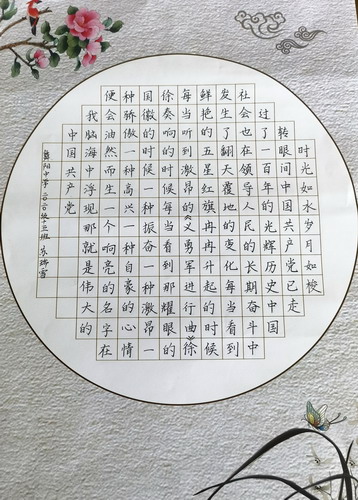 时光如水岁月如梭
转眼间中国共产党已走
过了一百年的光辉历史中国
社会也在领导人民的长期奋斗中
发生了翻天覆地的变化每当看到
鲜艳的五星红旗冉冉升起的时候
每当听到激昂的义勇军进行曲徐
徐奏响的时候每当看到那耀眼的
国徽的时候一种振奋一种激昂一
种骄傲一种高兴一种自豪的心情
便会油然而生一个响亮的名字在
我脑海中浮现那就是伟大的
中国共产党
阳中学